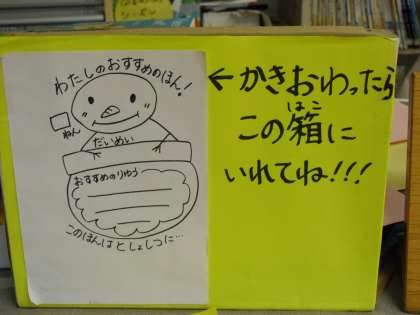 わたしのおすすめのほん!
□ねん
だいめい
おすすめのりゆう
このほんはとしょしつに…
←かきおわったら
この箱に
はこ
いれてね!!!